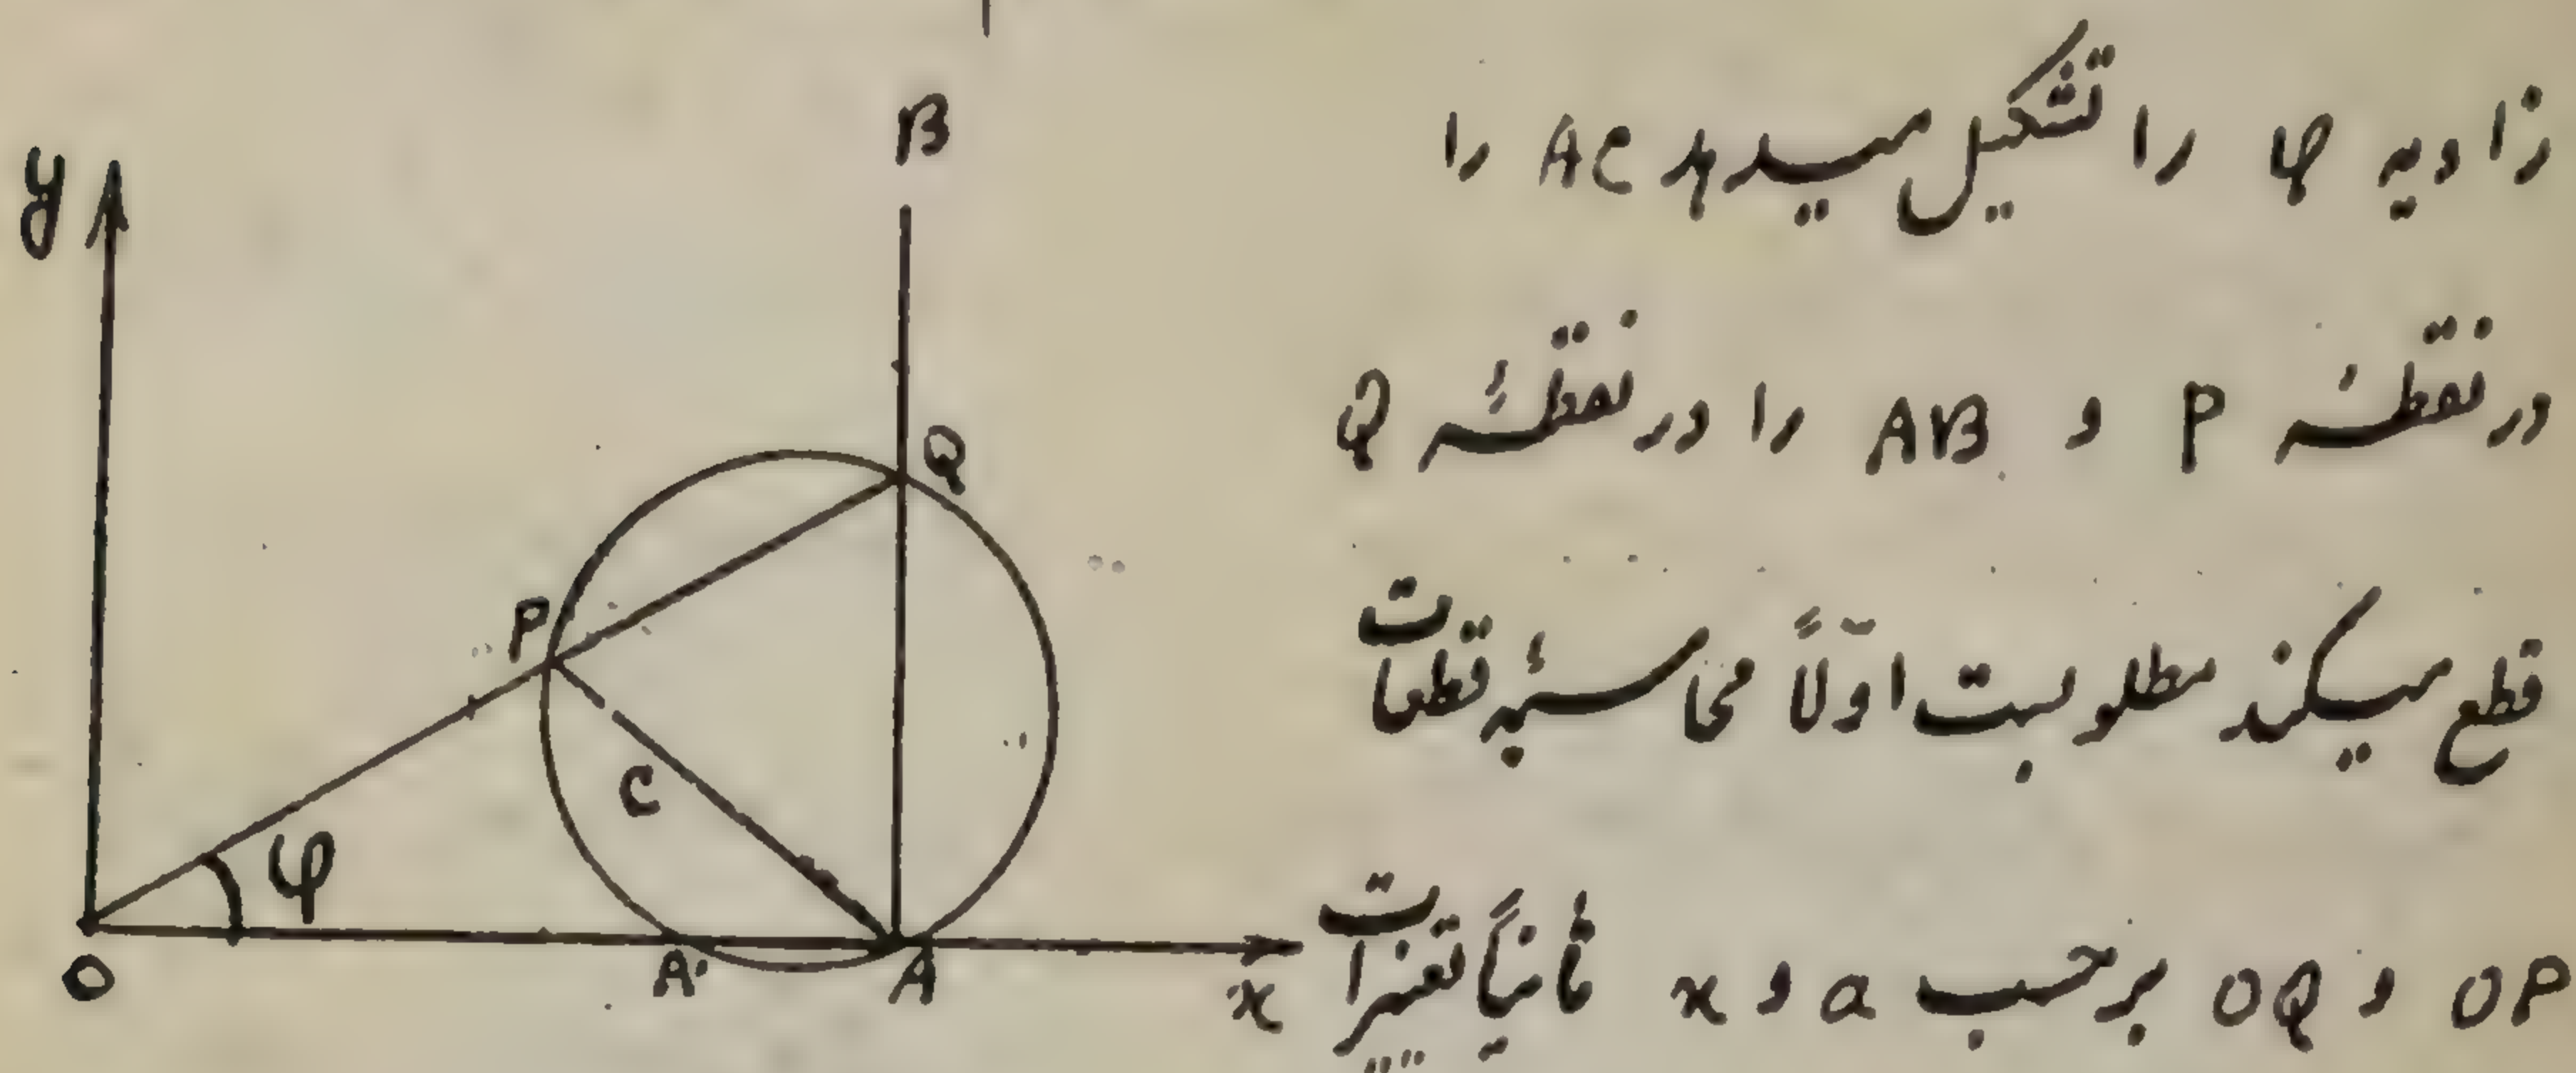 زاویه φ را تشکیل میدهد AC را
در نقطهٔ P و AB را در نقطهٔ Q
قطع میکند مطلوبست اولاً محاسبهٔ قطعات
OP و OQ برحسب a و x ثانیاً تغییرات
y
B
Q
P
C
φ
O
A'
A
x